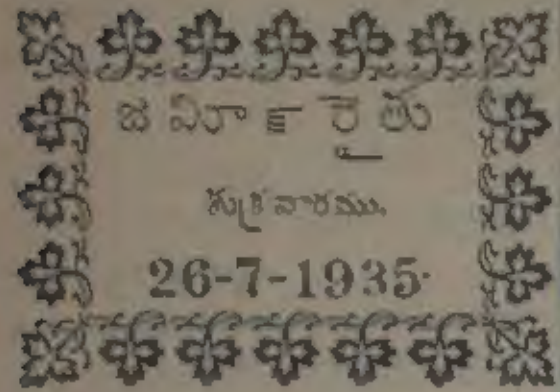 జమీన్ రైతు
శుక్రవారము.
26-7-1935.